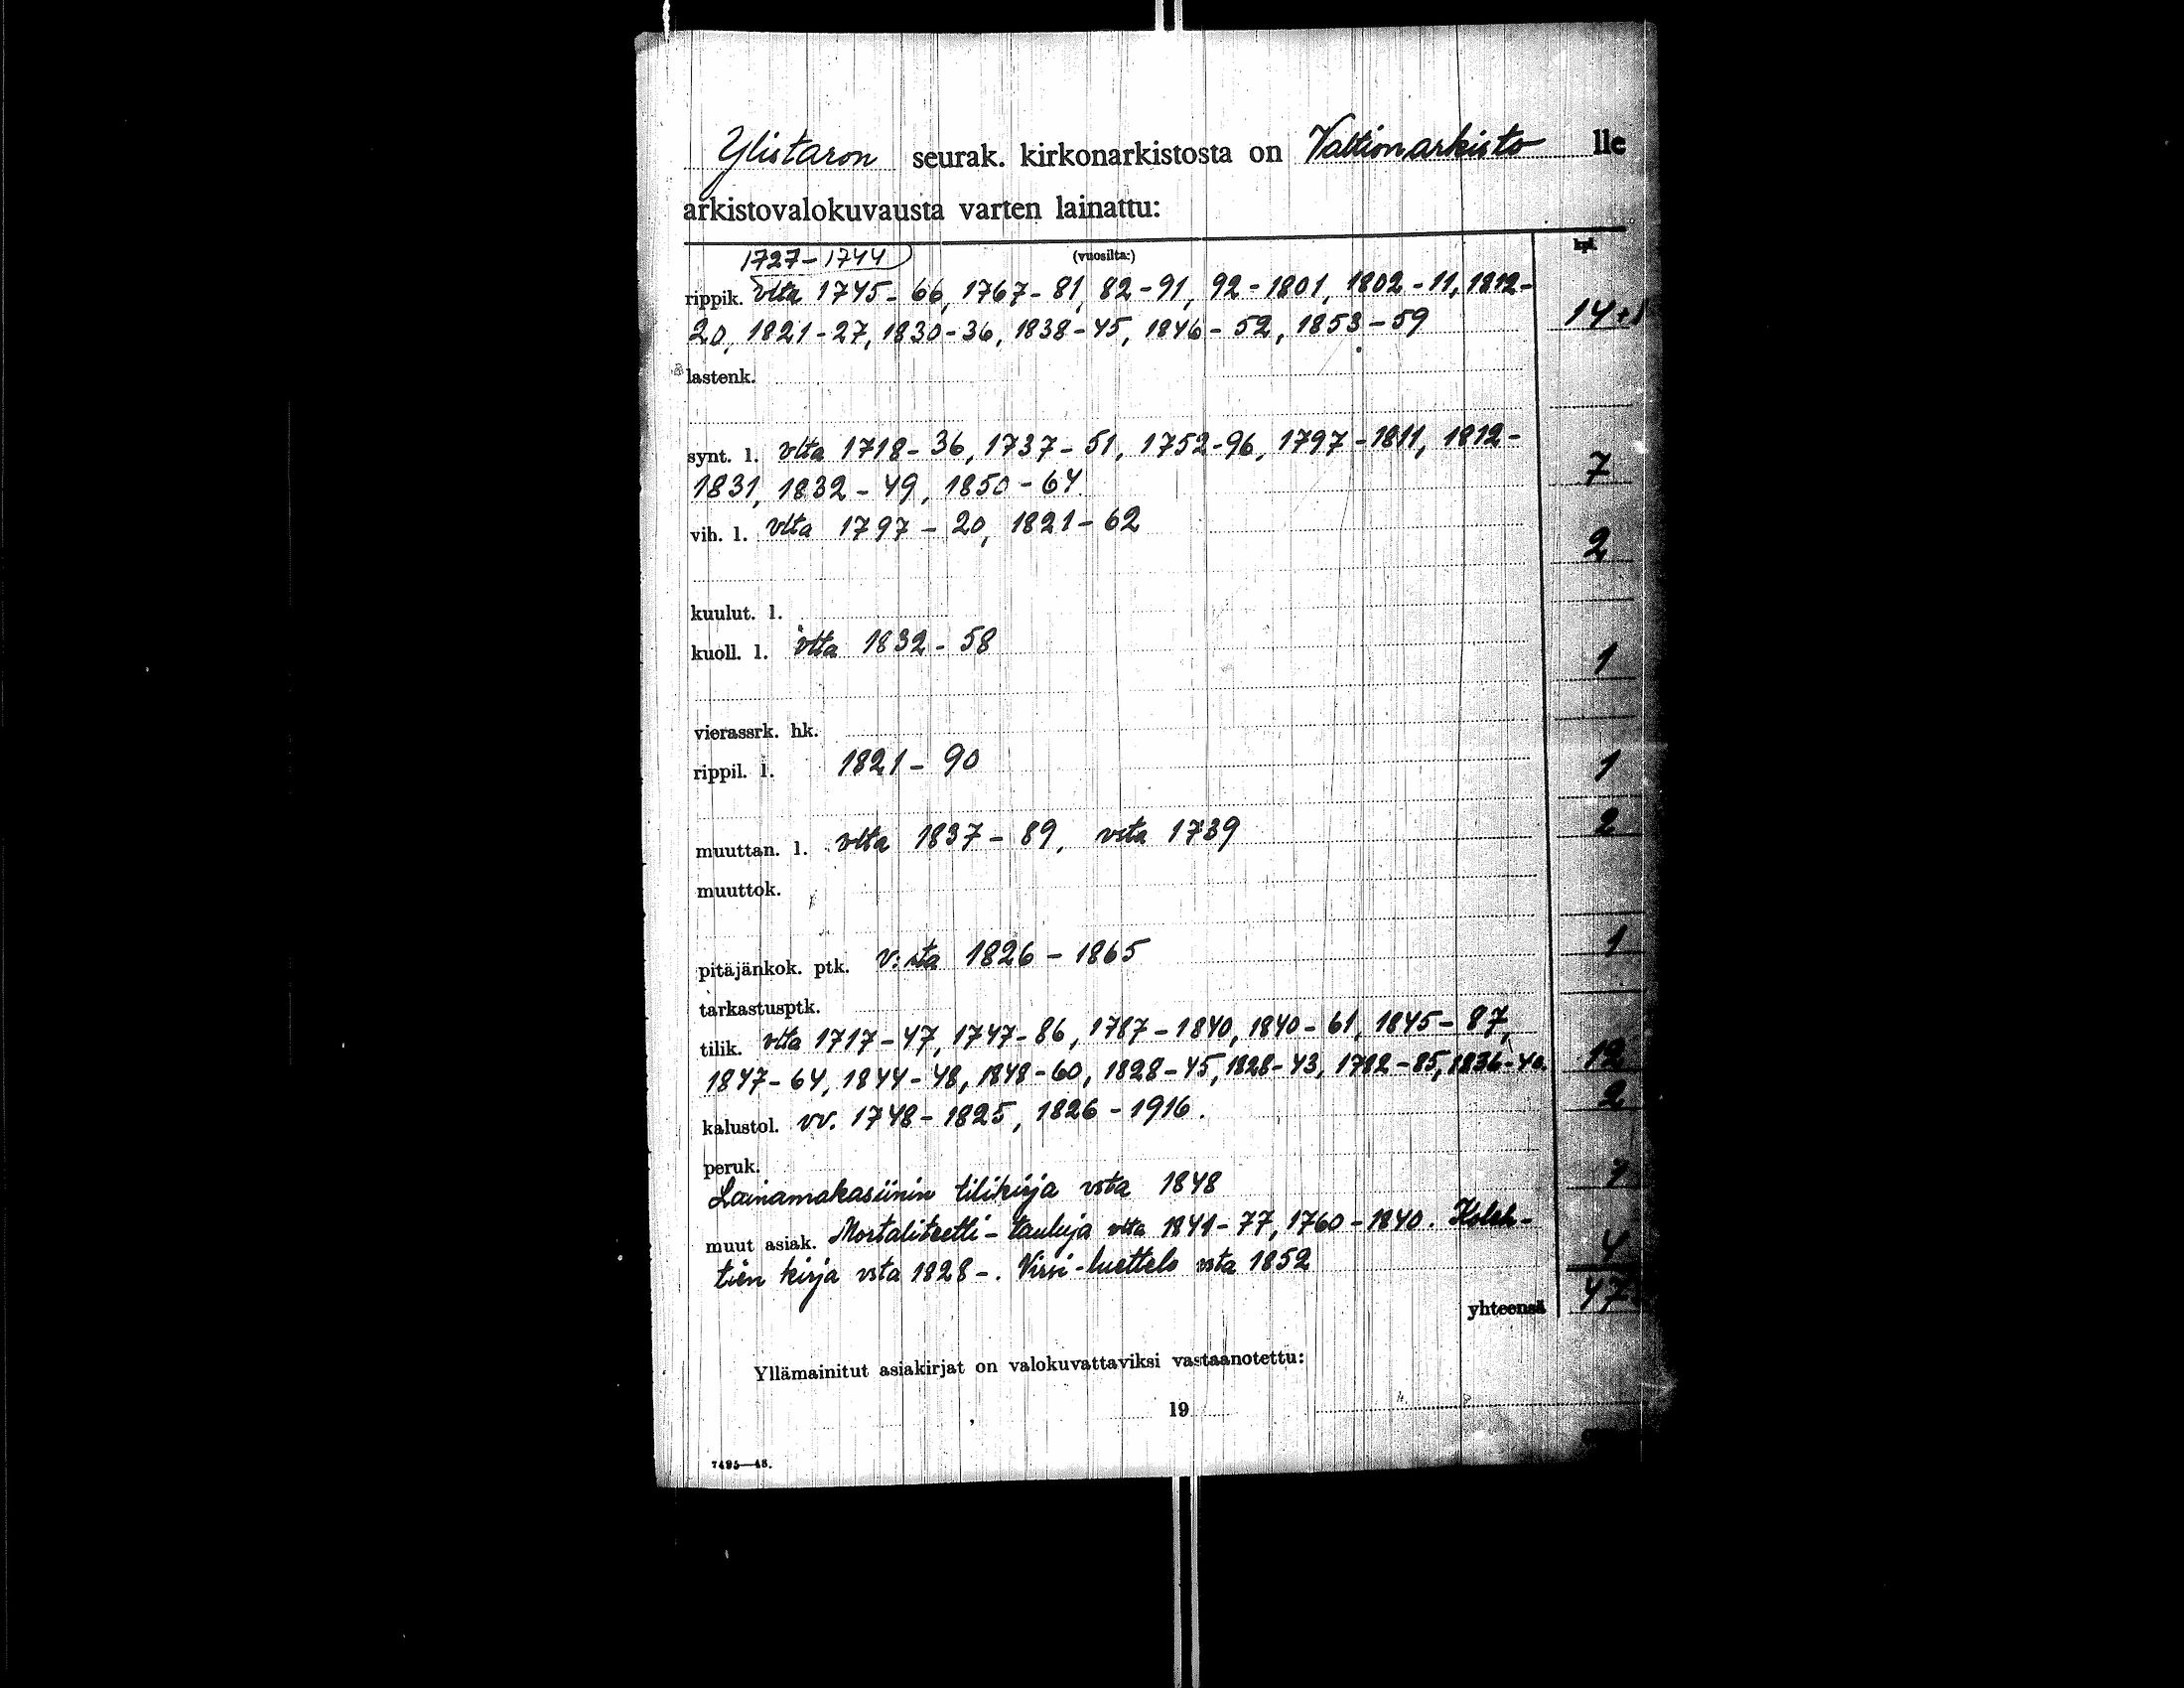 Ylistaron seurak. kirkonarkistosta on Valtionarkisto lle
arkistovalokuvausta varten lainattu:
1727-1744 (vuosilta:) kpl.
rippik. vlta 1745-66, 1767-81, 82-91, 92-1801, 1802-11, 1812-
20, 1821-27, 1830-36, 1838-45, 1846-52, 1853-59 14+1
lastenk.
synt. l. vlta 1718-36, 1737-51, 1752-96, 1797-1811, 1812-
1831, 1832-49, 1850-64. 7
vih. l. vlta 1797-20, 1821-62 2
kuulut. l.
kuoll. l. vlta 1832-58 1
vierassrk. hk.
rippil. l. 1821-90 1
muuttan. l. vlta 1837-89, vsta 1739 2
muuttok.
pitäjänkok. ptk. v:sta 1826-1865 1
tarkastusptk.
tilik. vlta 1717-47, 1747-86, 1787-1840, 1840-61, 1845-87,
1847-64, 1844-48, 1848-60, 1828-45, 1828-43, 1782-85, 1836-40. 12
kalustol. vv. 1748-1825, 1826-1916. 2
peruk.
Lainamakasiinin tilikirja vsta 1848 1
muut asiak. Mortaliteetti-tauluja vlta 1841-77, 1760-1840. Koleh-
tien kirja vsta 1828-. Virsi-luettelo vsta 1852 4
yhteensä 47
Yllämainitut asiakirjat on valokuvattaviksi vastaanotettu:
19
7495—48.